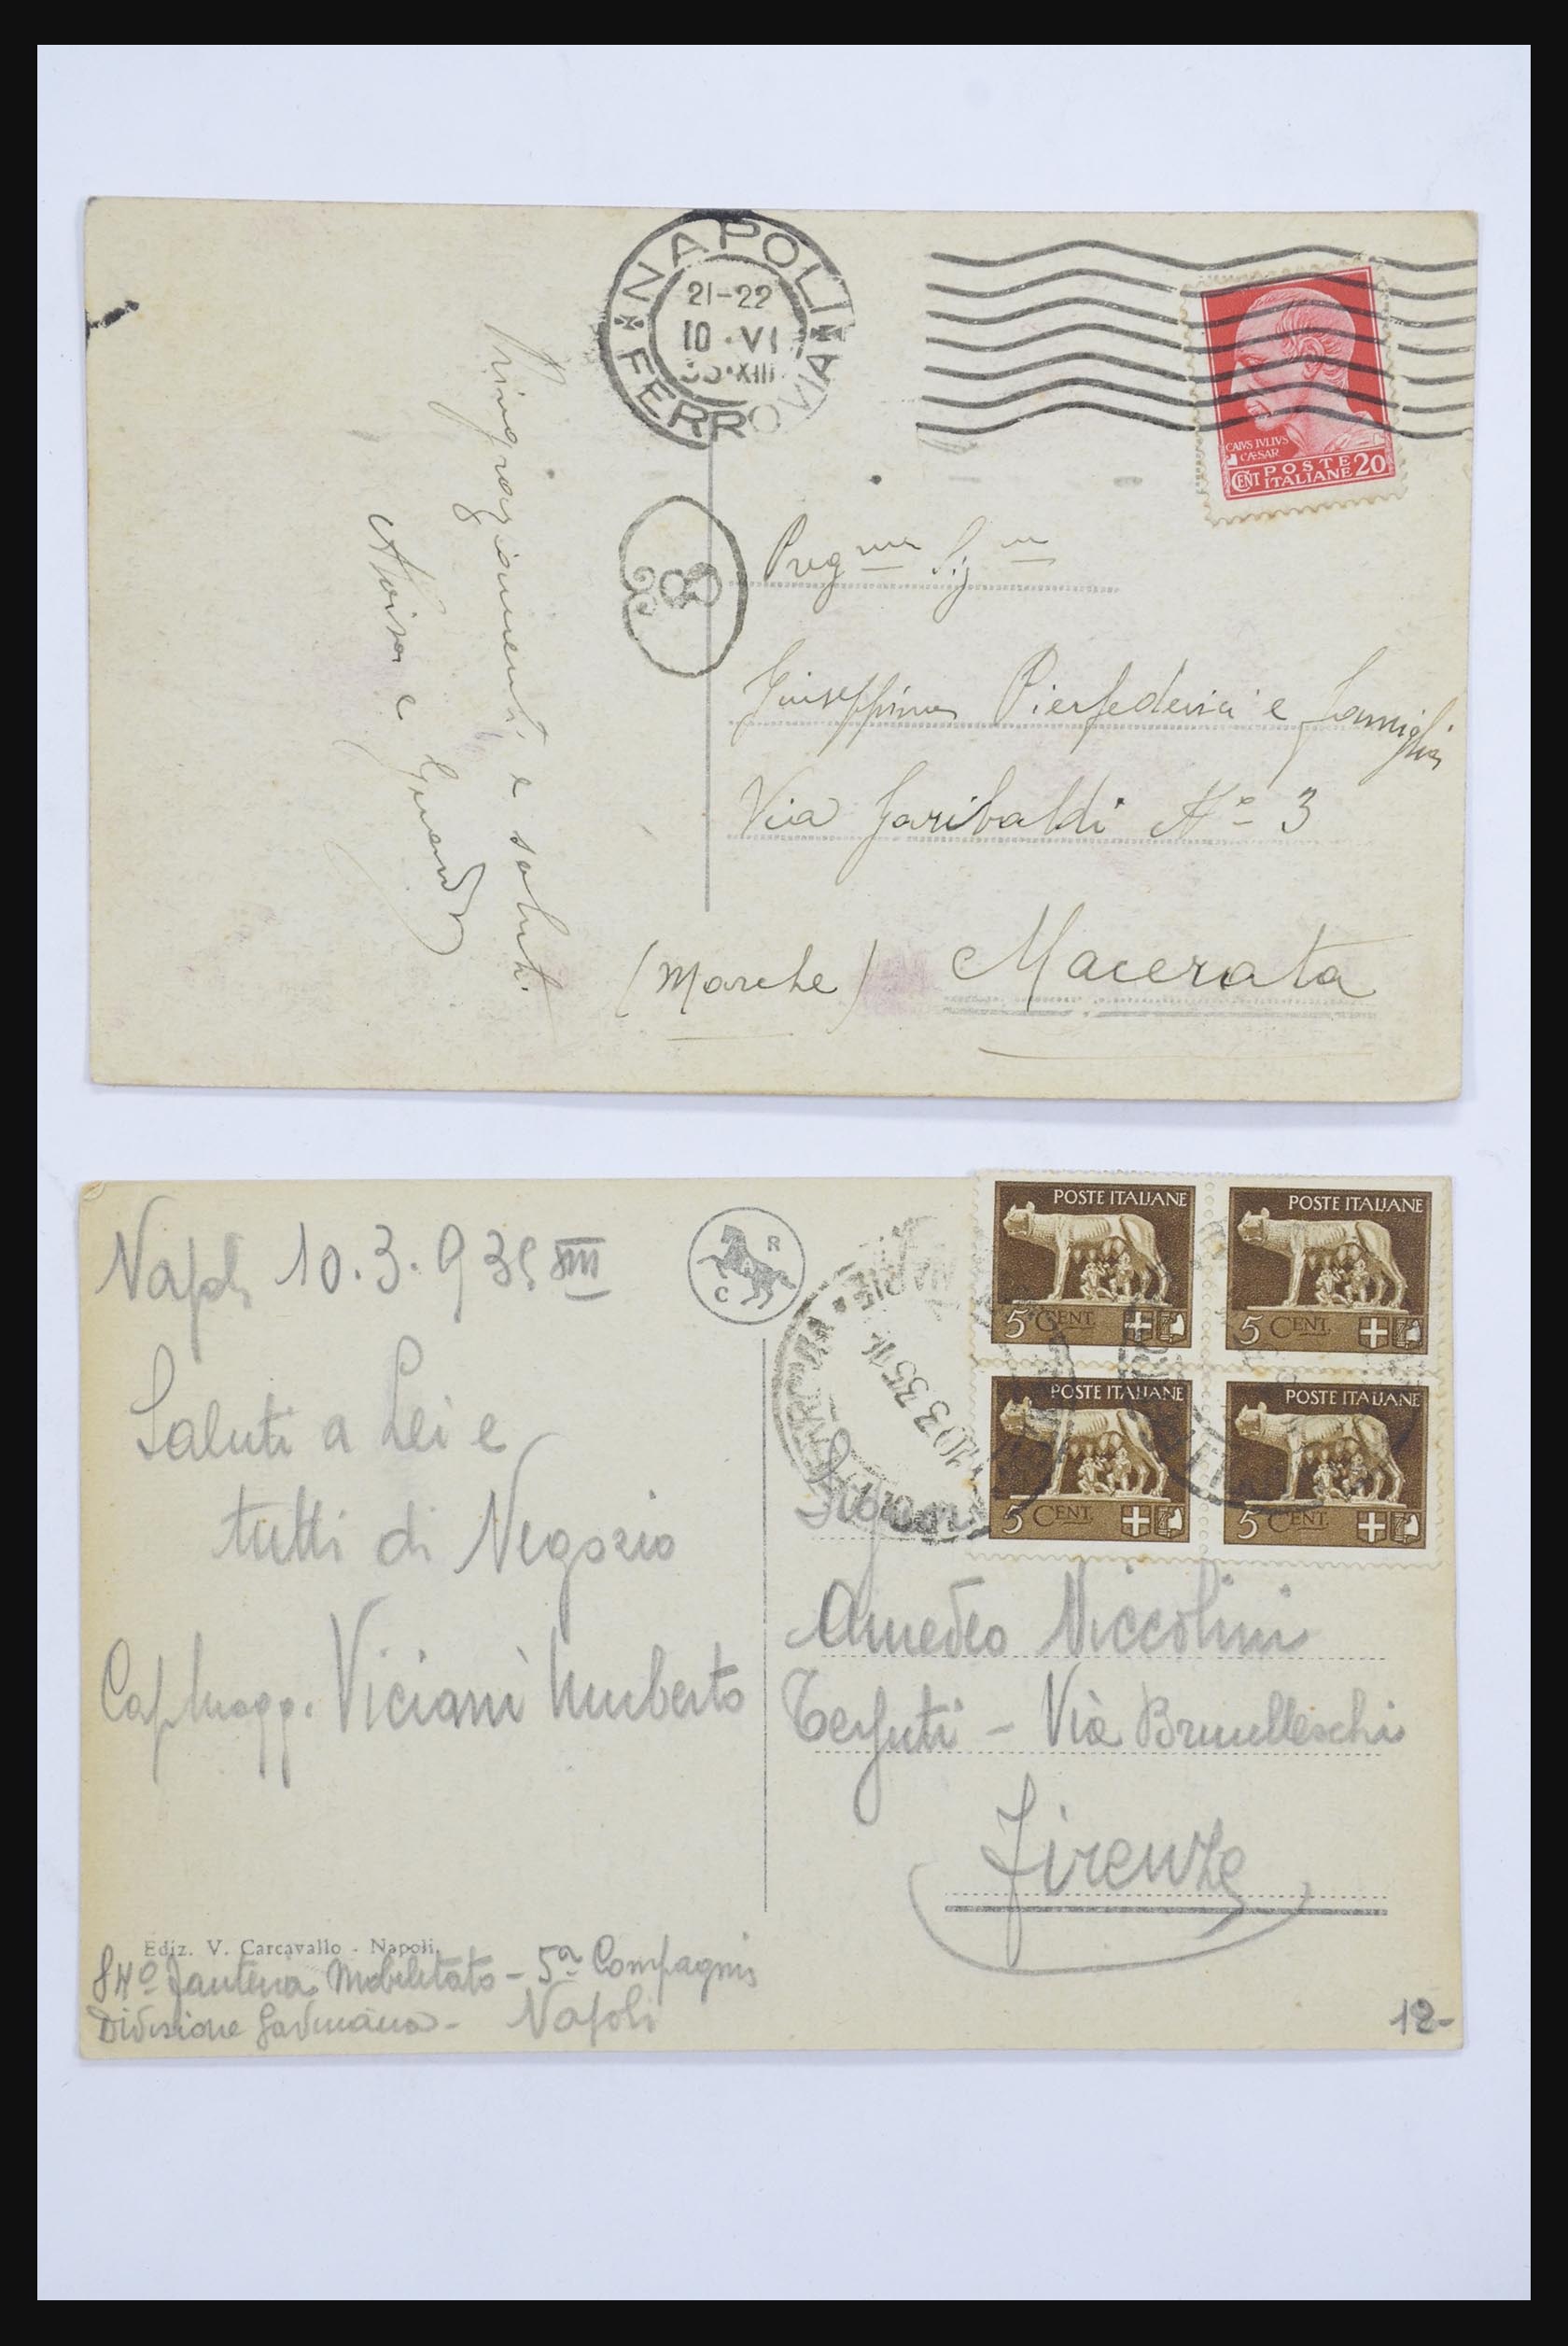 NAPOLI
21-22
10·VI
35·XIII
FERROVIA
CAIVS IVLIVS
CÆSAR
CENT POSTE ITALIANE 20
Ringraziamenti e saluti.
e
98
Giuseppina Pierfederici e famiglia
Via Garibaldi No 3
(Marche) Macerata
Napoli 10.3.935 XIII
Saluti a Lei e
tutti di Negozio
Viciani Umberto
R
C
10 3 35
NAPOLI
POSTE ITALIANE
5 CENT.
POSTE ITALIANE
5 CENT.
POSTE ITALIANE
5 CENT.
POSTE ITALIANE
5 CENT.
Amedeo Niccolini
- Via Brunelleschi
Firenze
Ediz. V. Carcavallo - Napoli
84º Fanteria Mobilitato - 5ª Compagnia
Divisione Gavinana - Napoli
12-